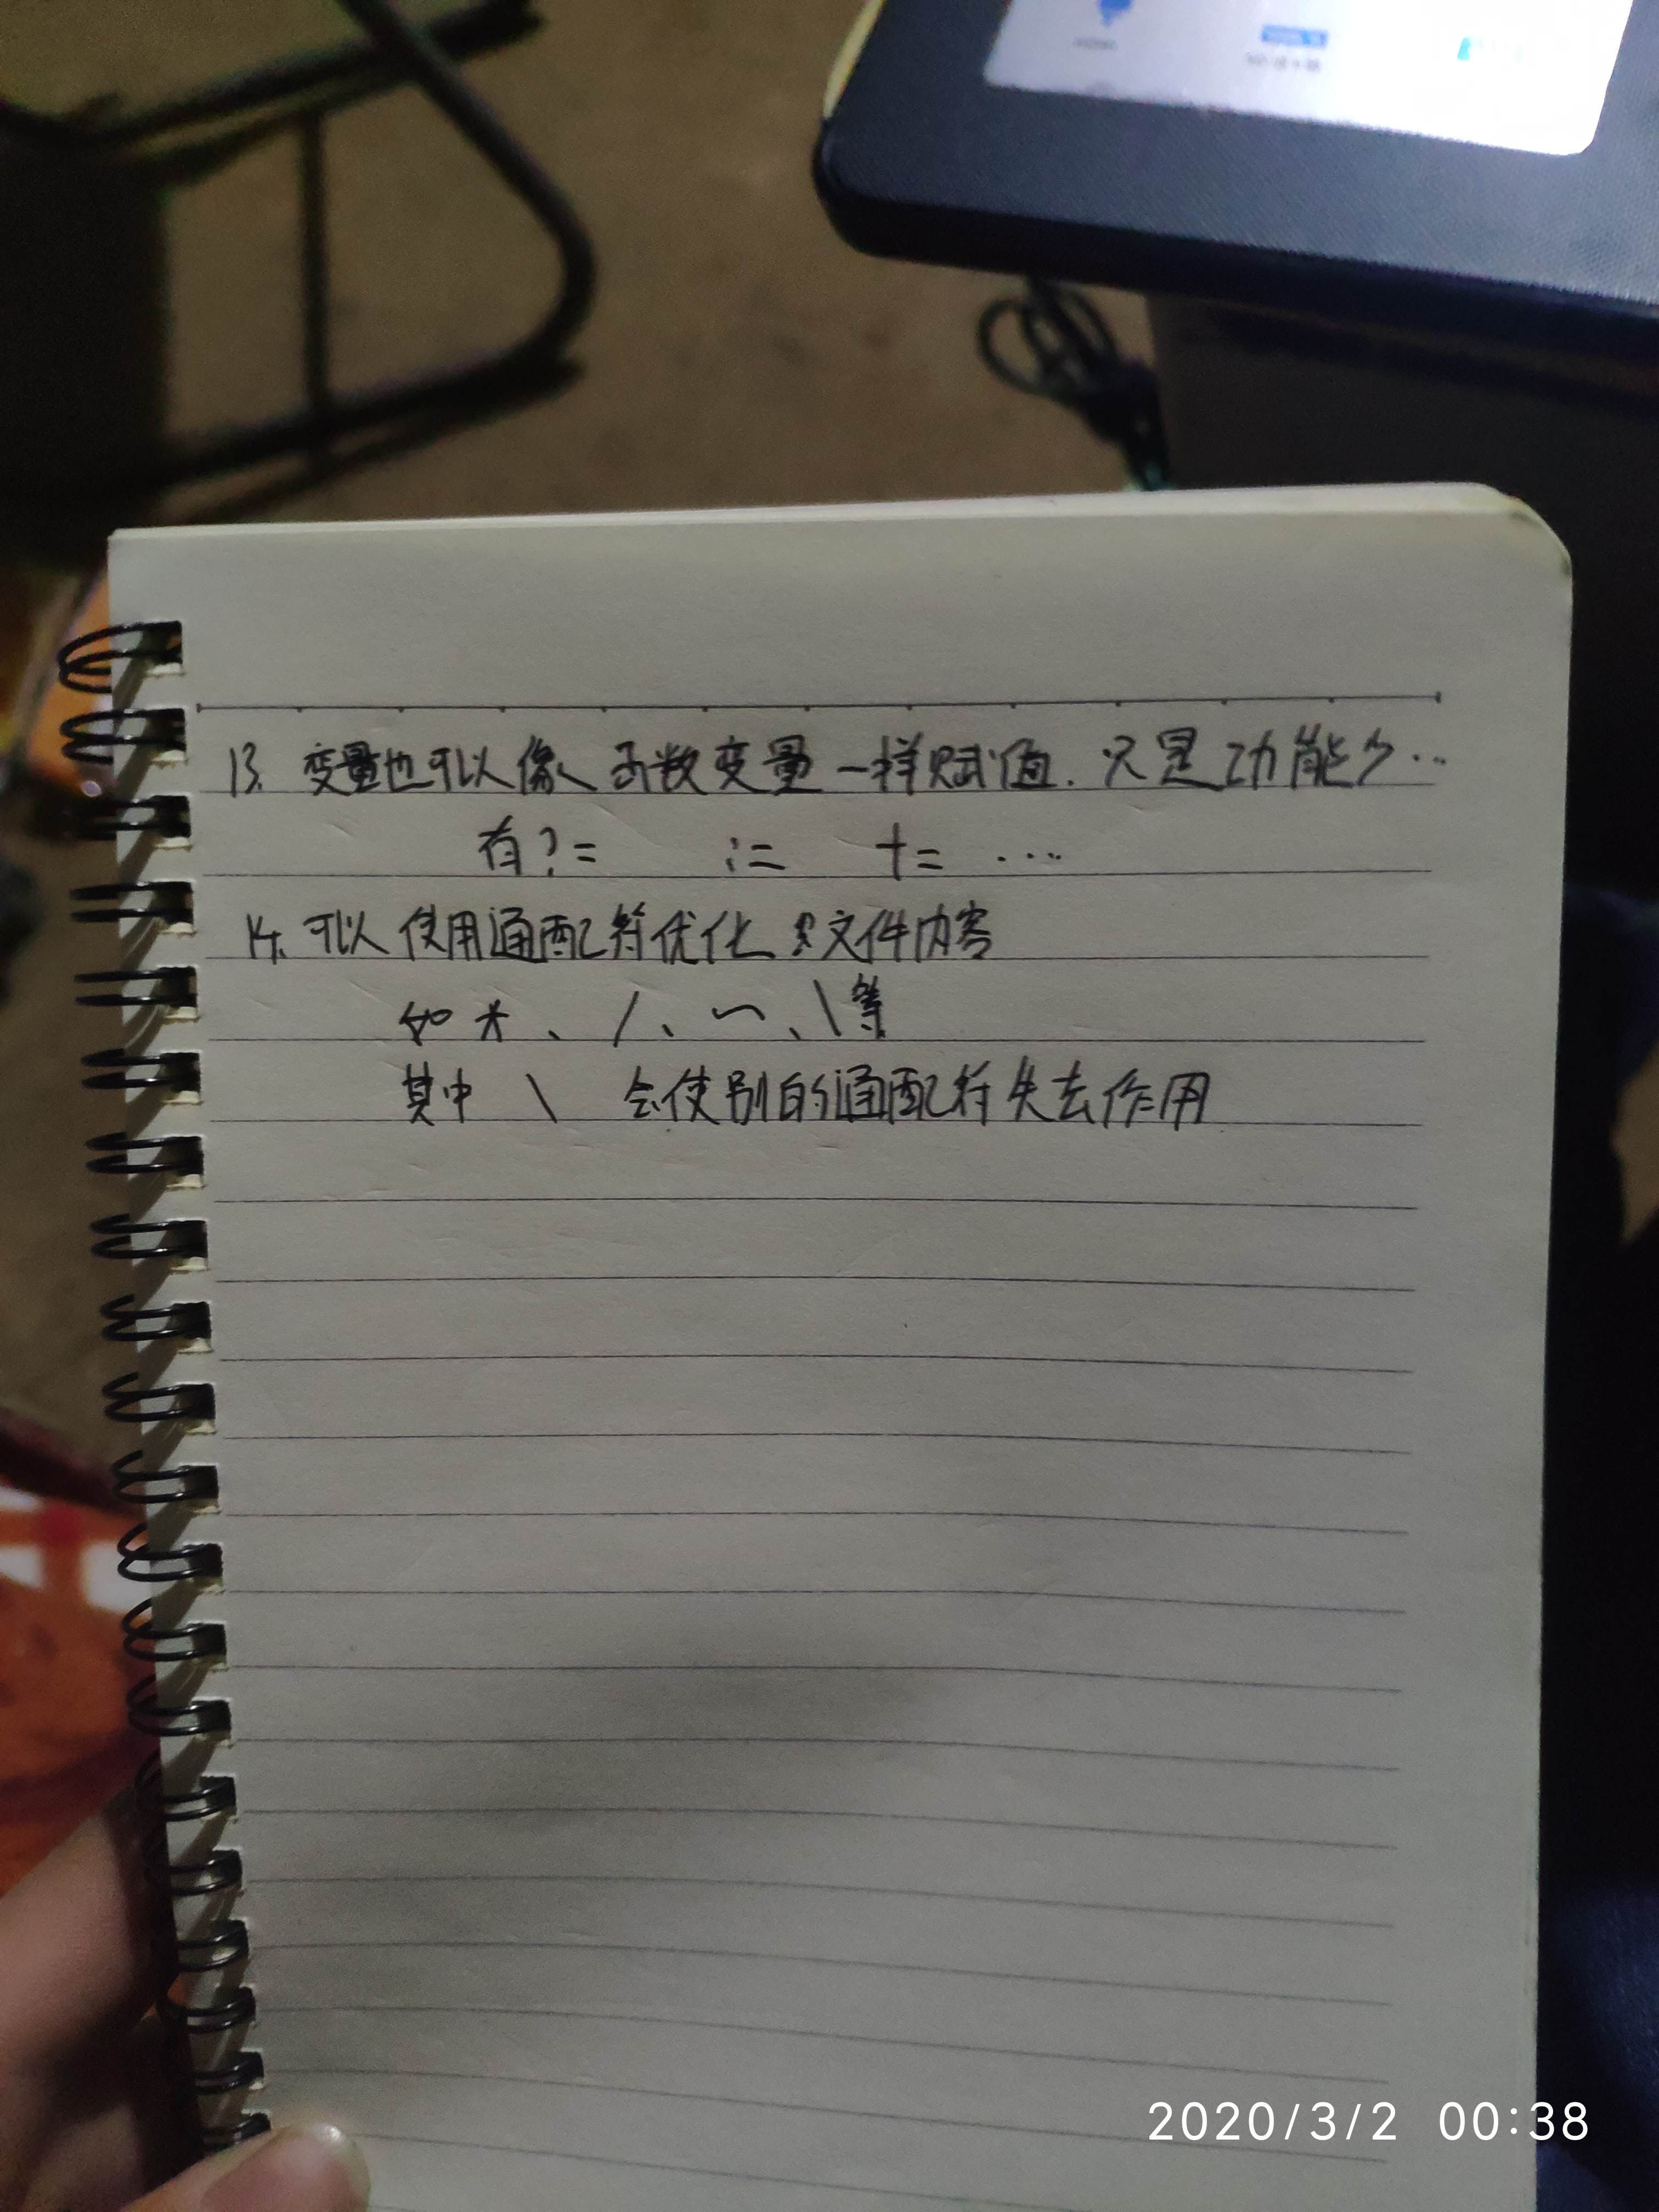 13. 变量也可以像函数变量一样赋值. 只是功能少…
有?= := += …
14. 可以使用通配符优化文件内容
如 *、/、~、\等
其中 \ 会使别的通配符失去作用
2020/3/2 00:38